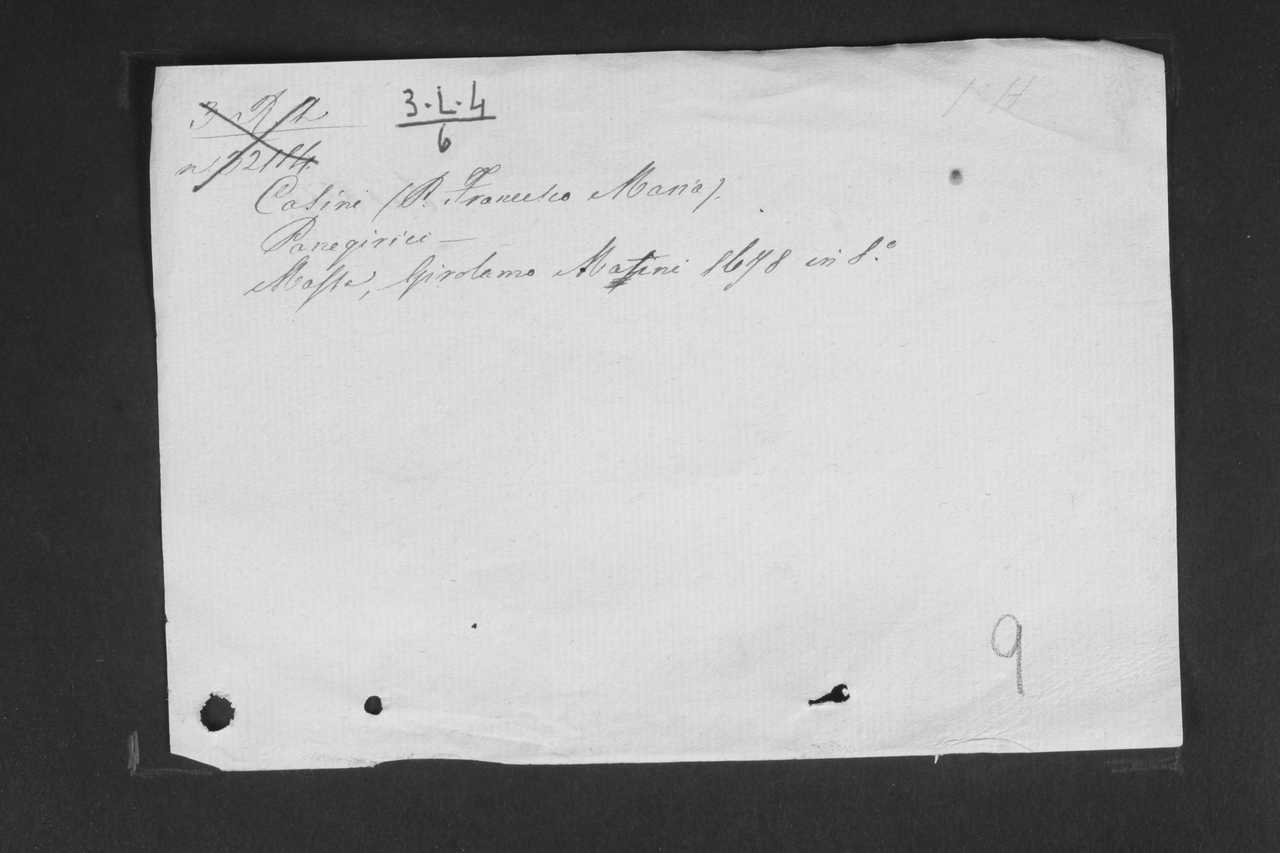 3·L·4
6
Casini (P. Francesco Maria).
Panegirici —
Massa, Girolamo Marini 1678 in 8.°
9